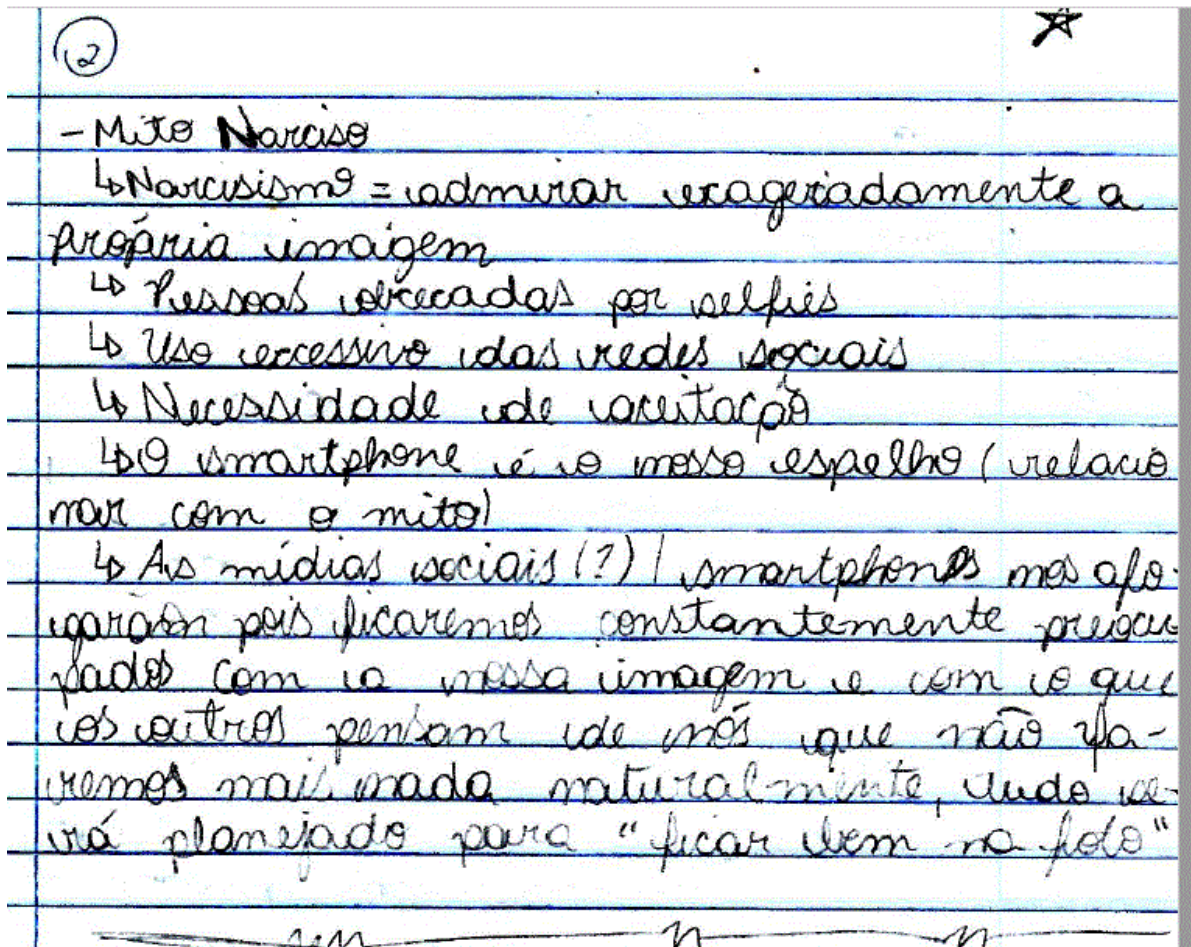 2
- Mito Narciso
↳ Narcisismo = admirar exageradamente a
própria imagem
↳ Pessoas obcecadas por selfies
↳ Uso excessivo das redes sociais
↳ Necessidade de aceitação
↳ O smartphone é o nosso espelho (relacio
nar com o mito)
↳ As mídias sociais (?) / smartphones nos afo-
garam pois ficaremos constantemente preocu
pados com a nossa imagem e com o que
os outros pensam de nós que não fa-
remos mais nada naturalmente, tudo se-
rá planejado para "ficar bem na foto"